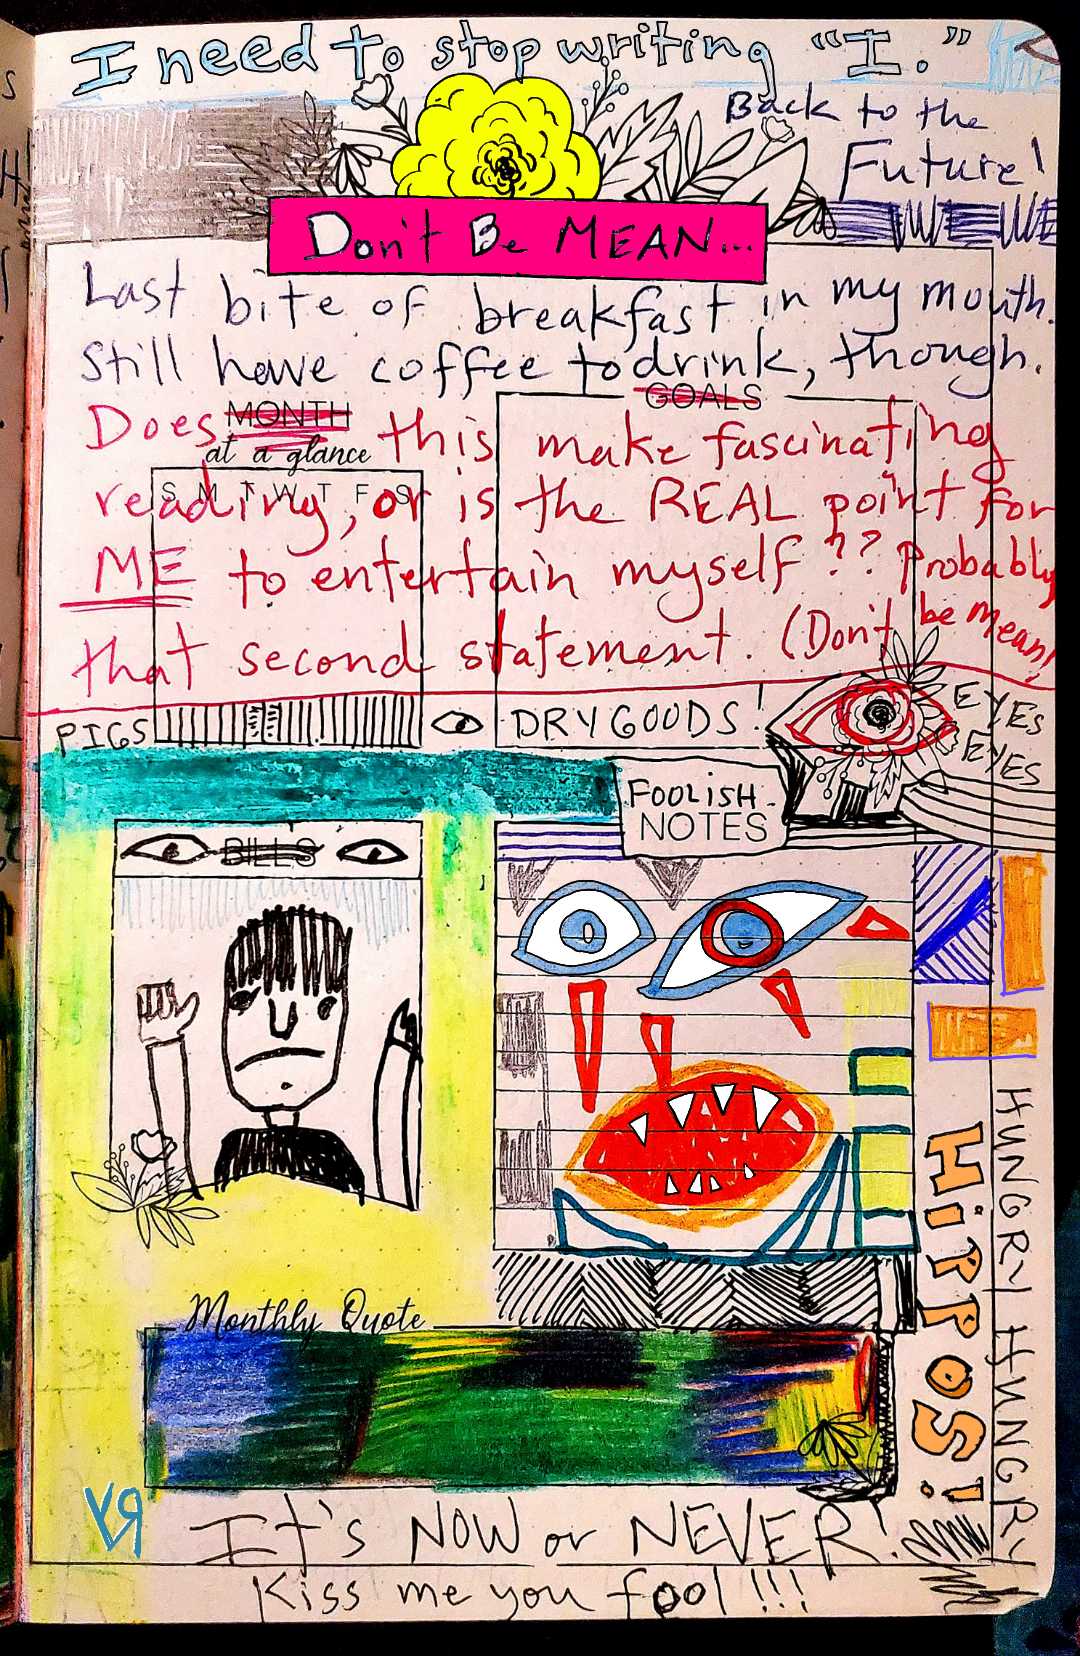 I need to stop writing "I."
Back to the
Future!
Don't Be MEAN...
Last bite of breakfast in my mouth.
Still have coffee to drink, though.
GOALS
Does MONTH this make fascinating
at a glance
S M T W T F S
reading, or is the REAL point for
ME to entertain myself?? Probably
that second statement. (Don't be mean!
PIGS
DRY GOODS!
EYES
EYES
FOOLISH
NOTES
BILLS
HUNGRY HUNGRY
HiPPOS!
Monthly Quote
It's NOW or NEVER!
Kiss me you fool!!!